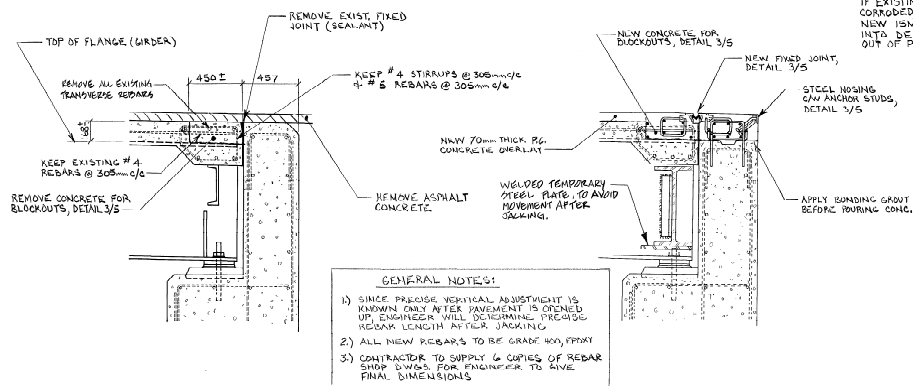 REMOVE EXIST. FIXED
JOINT (SEALANT)
TOP OF FLANGE (GIRDER)
REMOVE ALL EXISTING
TRANSVERSE REBARS
450 ±
457
KEEP #4 STIRRUPS @ 305mm c/c
& #5 REBARS @ 305mm c/c
KEEP EXISTING #4
REBARS @ 305mm c/c
REMOVE CONCRETE FOR
BLOCKOUTS, DETAIL 3/5
REMOVE ASPHALT
CONCRETE
NEW CONCRETE FOR
BLOCKOUTS, DETAIL 3/5
NEW FIXED JOINT,
DETAIL 3/5
STEEL NOSING
C/W ANCHOR STUDS,
DETAIL 3/5
NEW 70mm THICK
CONCRETE OVERLAY
WELDED TEMPORARY
STEEL PLATE, TO AVOID
MOVEMENT AFTER
JACKING.
APPLY BONDING GROUT
BEFORE POURING CONC.
IF EXISTIN
CORRODED
NEW 15M
INTO DE
OUT OF P
GENERAL NOTES:
1.) SINCE PRECISE VERTICAL ADJUSTMENT IS
KNOWN ONLY AFTER PAVEMENT IS OPENED
UP, ENGINEER WILL DETERMINE PRECISE
REBAR LENGTH AFTER JACKING
2.) ALL NEW REBARS TO BE GRADE 400, EPOXY
3.) CONTRACTOR TO SUPPLY 6 COPIES OF REBAR
SHOP DWGS. FOR ENGINEER TO GIVE
FINAL DIMENSIONS